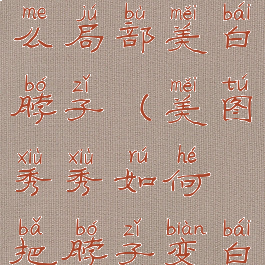 me jú bù měi bái
么局部美白
bó zǐ měi tú
脖子（美图
xiù xiù rú hé
秀秀如何
bǎ bó zǐ biàn bái
把脖子变白